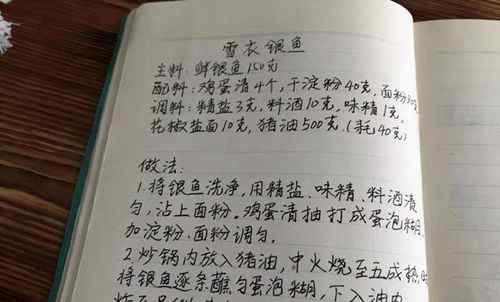 雪衣银鱼
主料：鲜银鱼150克
配料：鸡蛋清4个，干淀粉40克，面粉30克
调料：精盐3克，料酒10克，味精1克，
花椒盐面10克，猪油500克（耗40克）
做法：
1.将银鱼洗净，用精盐、味精、料酒渍
匀，沾上面粉。鸡蛋清抽打成蛋泡糊，
加淀粉、面粉调匀。
2.炒锅内放入猪油，中火烧至五成热时
将银鱼逐条蘸匀蛋泡糊，下入油